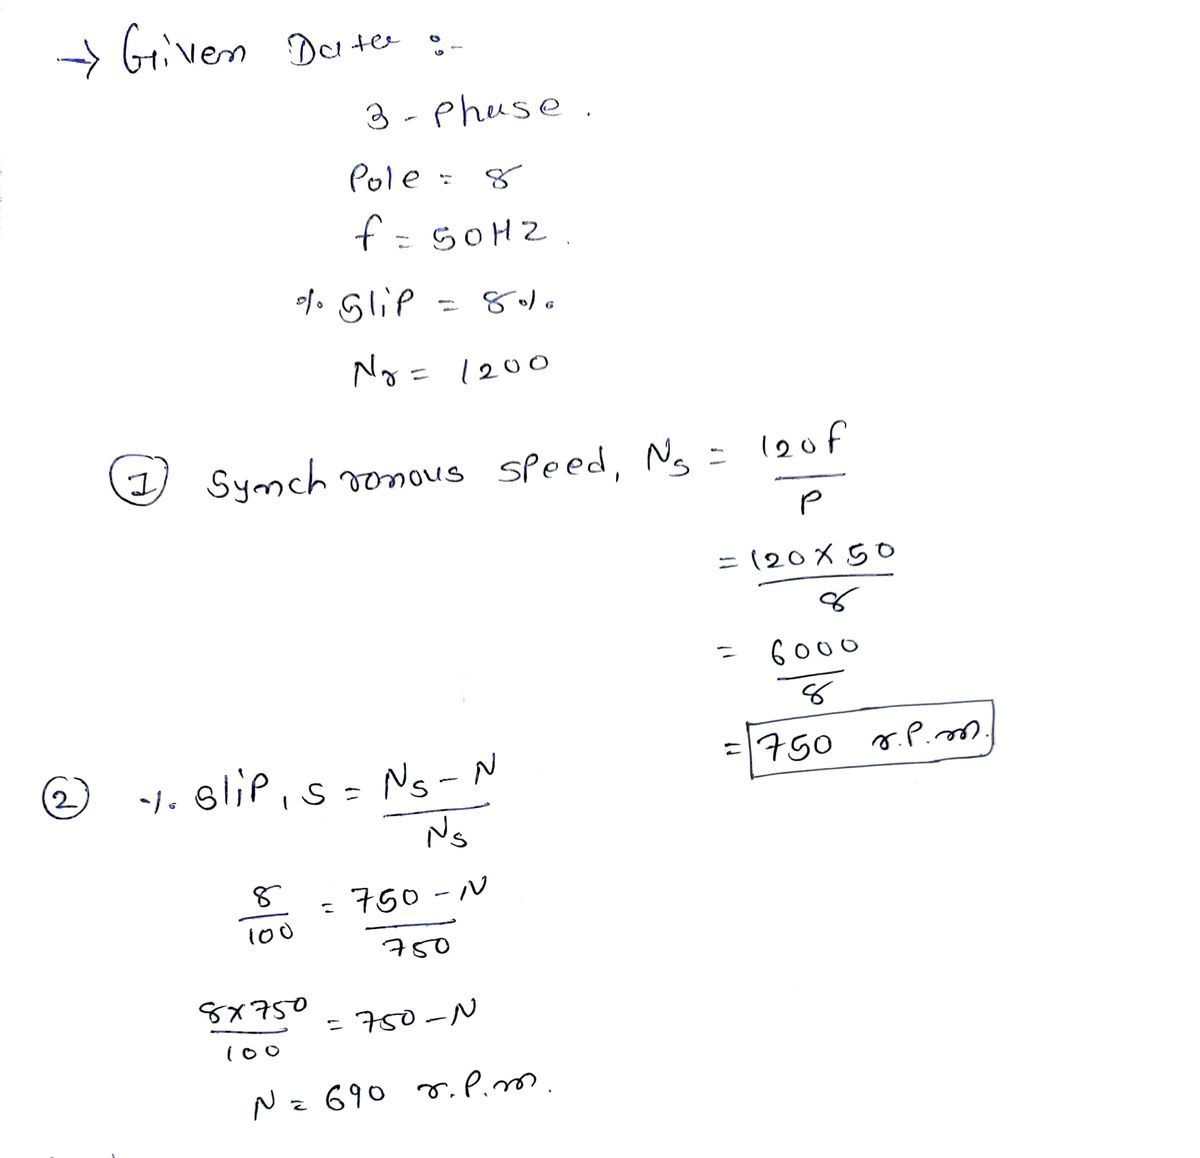 → Given Data :-
3 - Phase .
Pole = 8
f = 50HZ .
% Slip = 8%
Nr = 1200
① Synchronous speed, Ns = 120f / P
= 120 X 50 / 8
= 6000 / 8
= 750 r.P.m.
② % Slip, S = Ns - N / Ns
8 / 100 = 750 - N / 750
8 X 750 / 100 = 750 - N
N = 690 r.P.m.